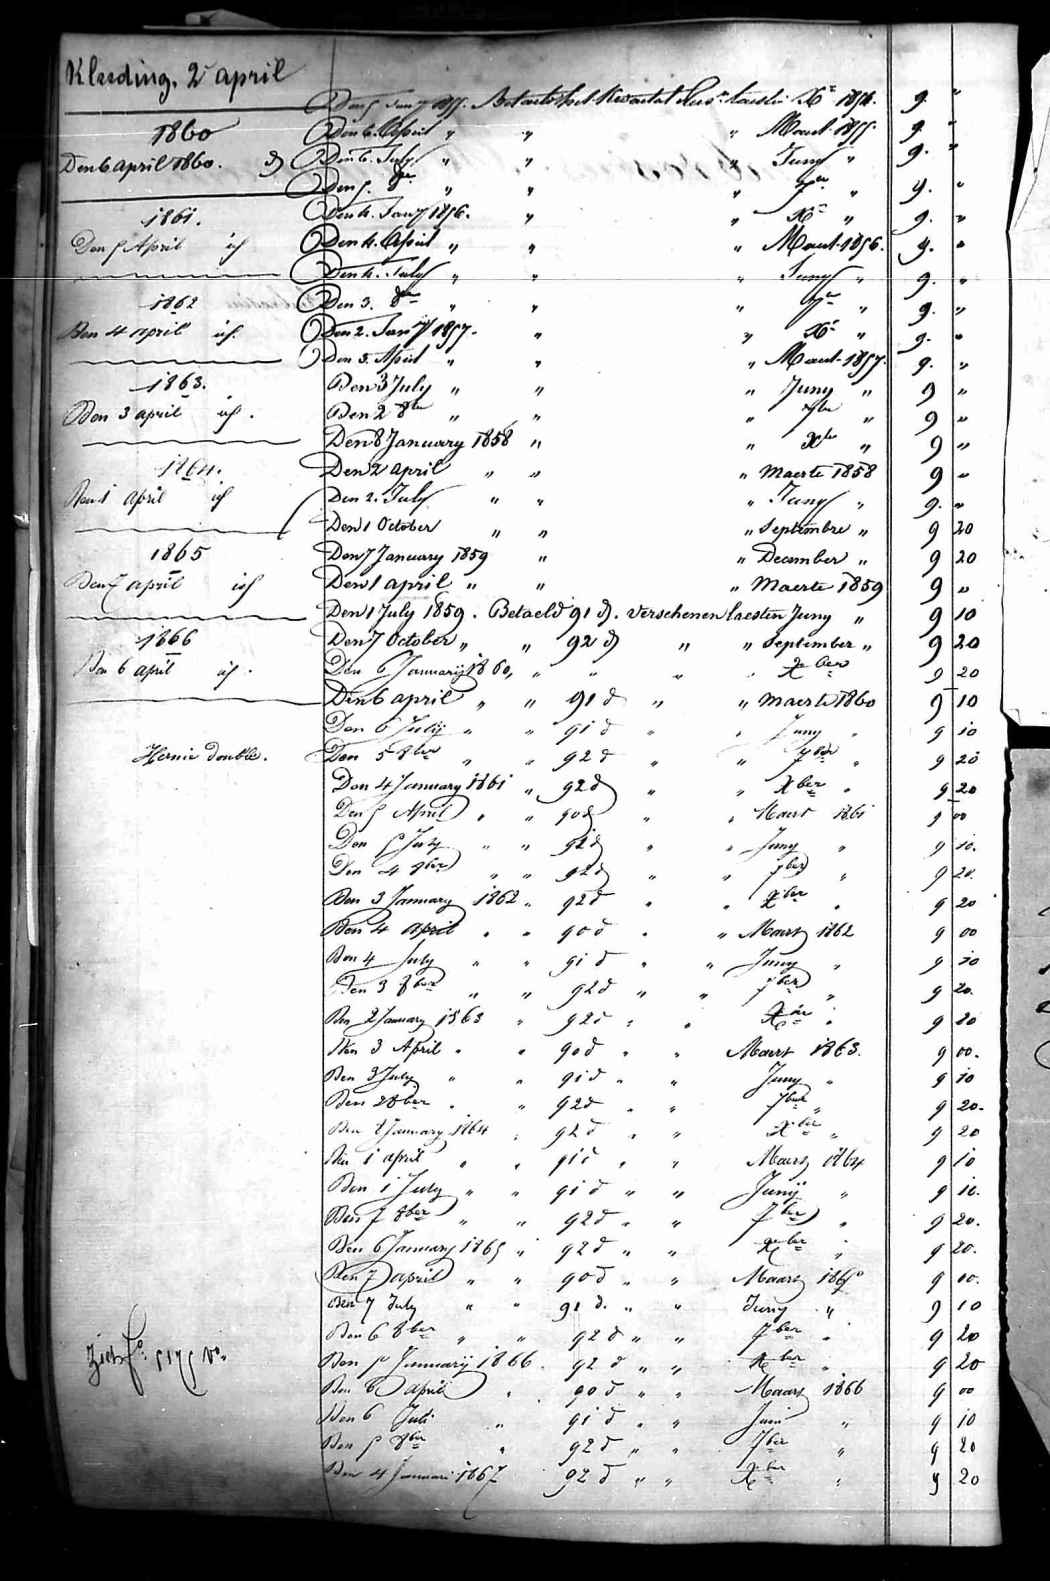 Kleeding. 2 april
1860
Den 6 April 1860. d
1861.
Den 5 April id
1862
Den 4 april id.
1863.
Den 3 april id.
1864.
Den 1 April id
1865
Den 7 april id
1866
Den 6 april id.
Hernie double.
Zie fo.
Den 5 Jany 1855. Betaeld het Kwartael laesten Xr 1854. 9. "
Den 6. April " " " Maert 1855. 9. "
Den 6. July " " " Juny " 9. "
Den 5. 8re " " " 7re " 9. "
Den 4. Jany 1856. " " Xr " 9. "
Den 4. April " " " Maert 1856. 9. "
Den 4. July " " " Juny " 9. "
Den 3. 8re " " " 7re " 9. "
Den 2. Jany 1857. " " Xr " 9. "
Den 3. April " " " Maert 1857. 9. "
Den 3 July " " " Juny " 9 "
Den 2 8bre " " " 7bre " 9 "
Den 8 January 1858 " " Xbr " 9 "
Den 2 april " " " Maerte 1858 9 "
Den 2. July " " " Juny " 9. "
Den 1 October " " " Septembre " 9 20
Den 7 January 1859 " " December " 9 20
Den 1 april " " " Maerte 1859 9 "
Den 1 July 1859. Betaeld 91 d. verschenen laesten Juny " 9 10
Den 7 October " " 92 d " " September " 9 20
Den 6 January 1860, " " " " Xber 9 20
Den 6 april " " 91 d " " maerte 1860 9 10
Den 6 July " " 91 d " " Juny " 9 10
Den 5 8ber " " 92 d " " 7ber " 9 20
Den 4 January 1861 " 92 d " " Xber " 9 20
Den 5 April " " 90 d " " Maert 1861 9 00
Den 5 July " " 91 d " " Juny " 9 10.
Den 4 8ber " " 92 d " " 7ber " 9 20.
Den 3 January 1862 " 92 d " " Xber " 9 20
Den 4 april " " 90 d " " Maert 1862 9 00
Den 4 July " " 91 d " " Juny " 9 10
Den 3 8ber " " 92 d " " 7ber " 9 20.
Den 2 January 1863 " 92 d " " Xber " 9 20
Den 3 April " " 90 d " " Maert 1863. 9 00.
Den 3 July " " 91 d " " Juny " 9 10
Den 2 8ber " " 92 d " " 7ber " 9 20.
Den January 1864 " 92 d " " Xber " 9 20
Den 1 april " " 91 d " " Maert 1864 9 10
Den 1 July " " 91 d " " Junij " 9 10.
Den 7 8ber " " 92 d " " 7ber " 9 20.
Den 6 January 1865 " 92 d " " Xber " 9 20.
Den 7 april " " 90 d " " Maart 1865 9 00.
Den 7 July " " 91 d. " " Juny " 9 10
Den 6 8ber " " 92 d " " 7ber " 9 20
Den 5 Januarij 1866. 92 d " " Xber " 9 20
Den 6 April " 90 d " " Maart 1866 9 00
Den 6 Juli " 91 d " " Juni " 9 10
Den 5 8ber " 92 d " " 7ber " 9 20
Den 4 Januari 1867 92 d " " Xber " 9 20